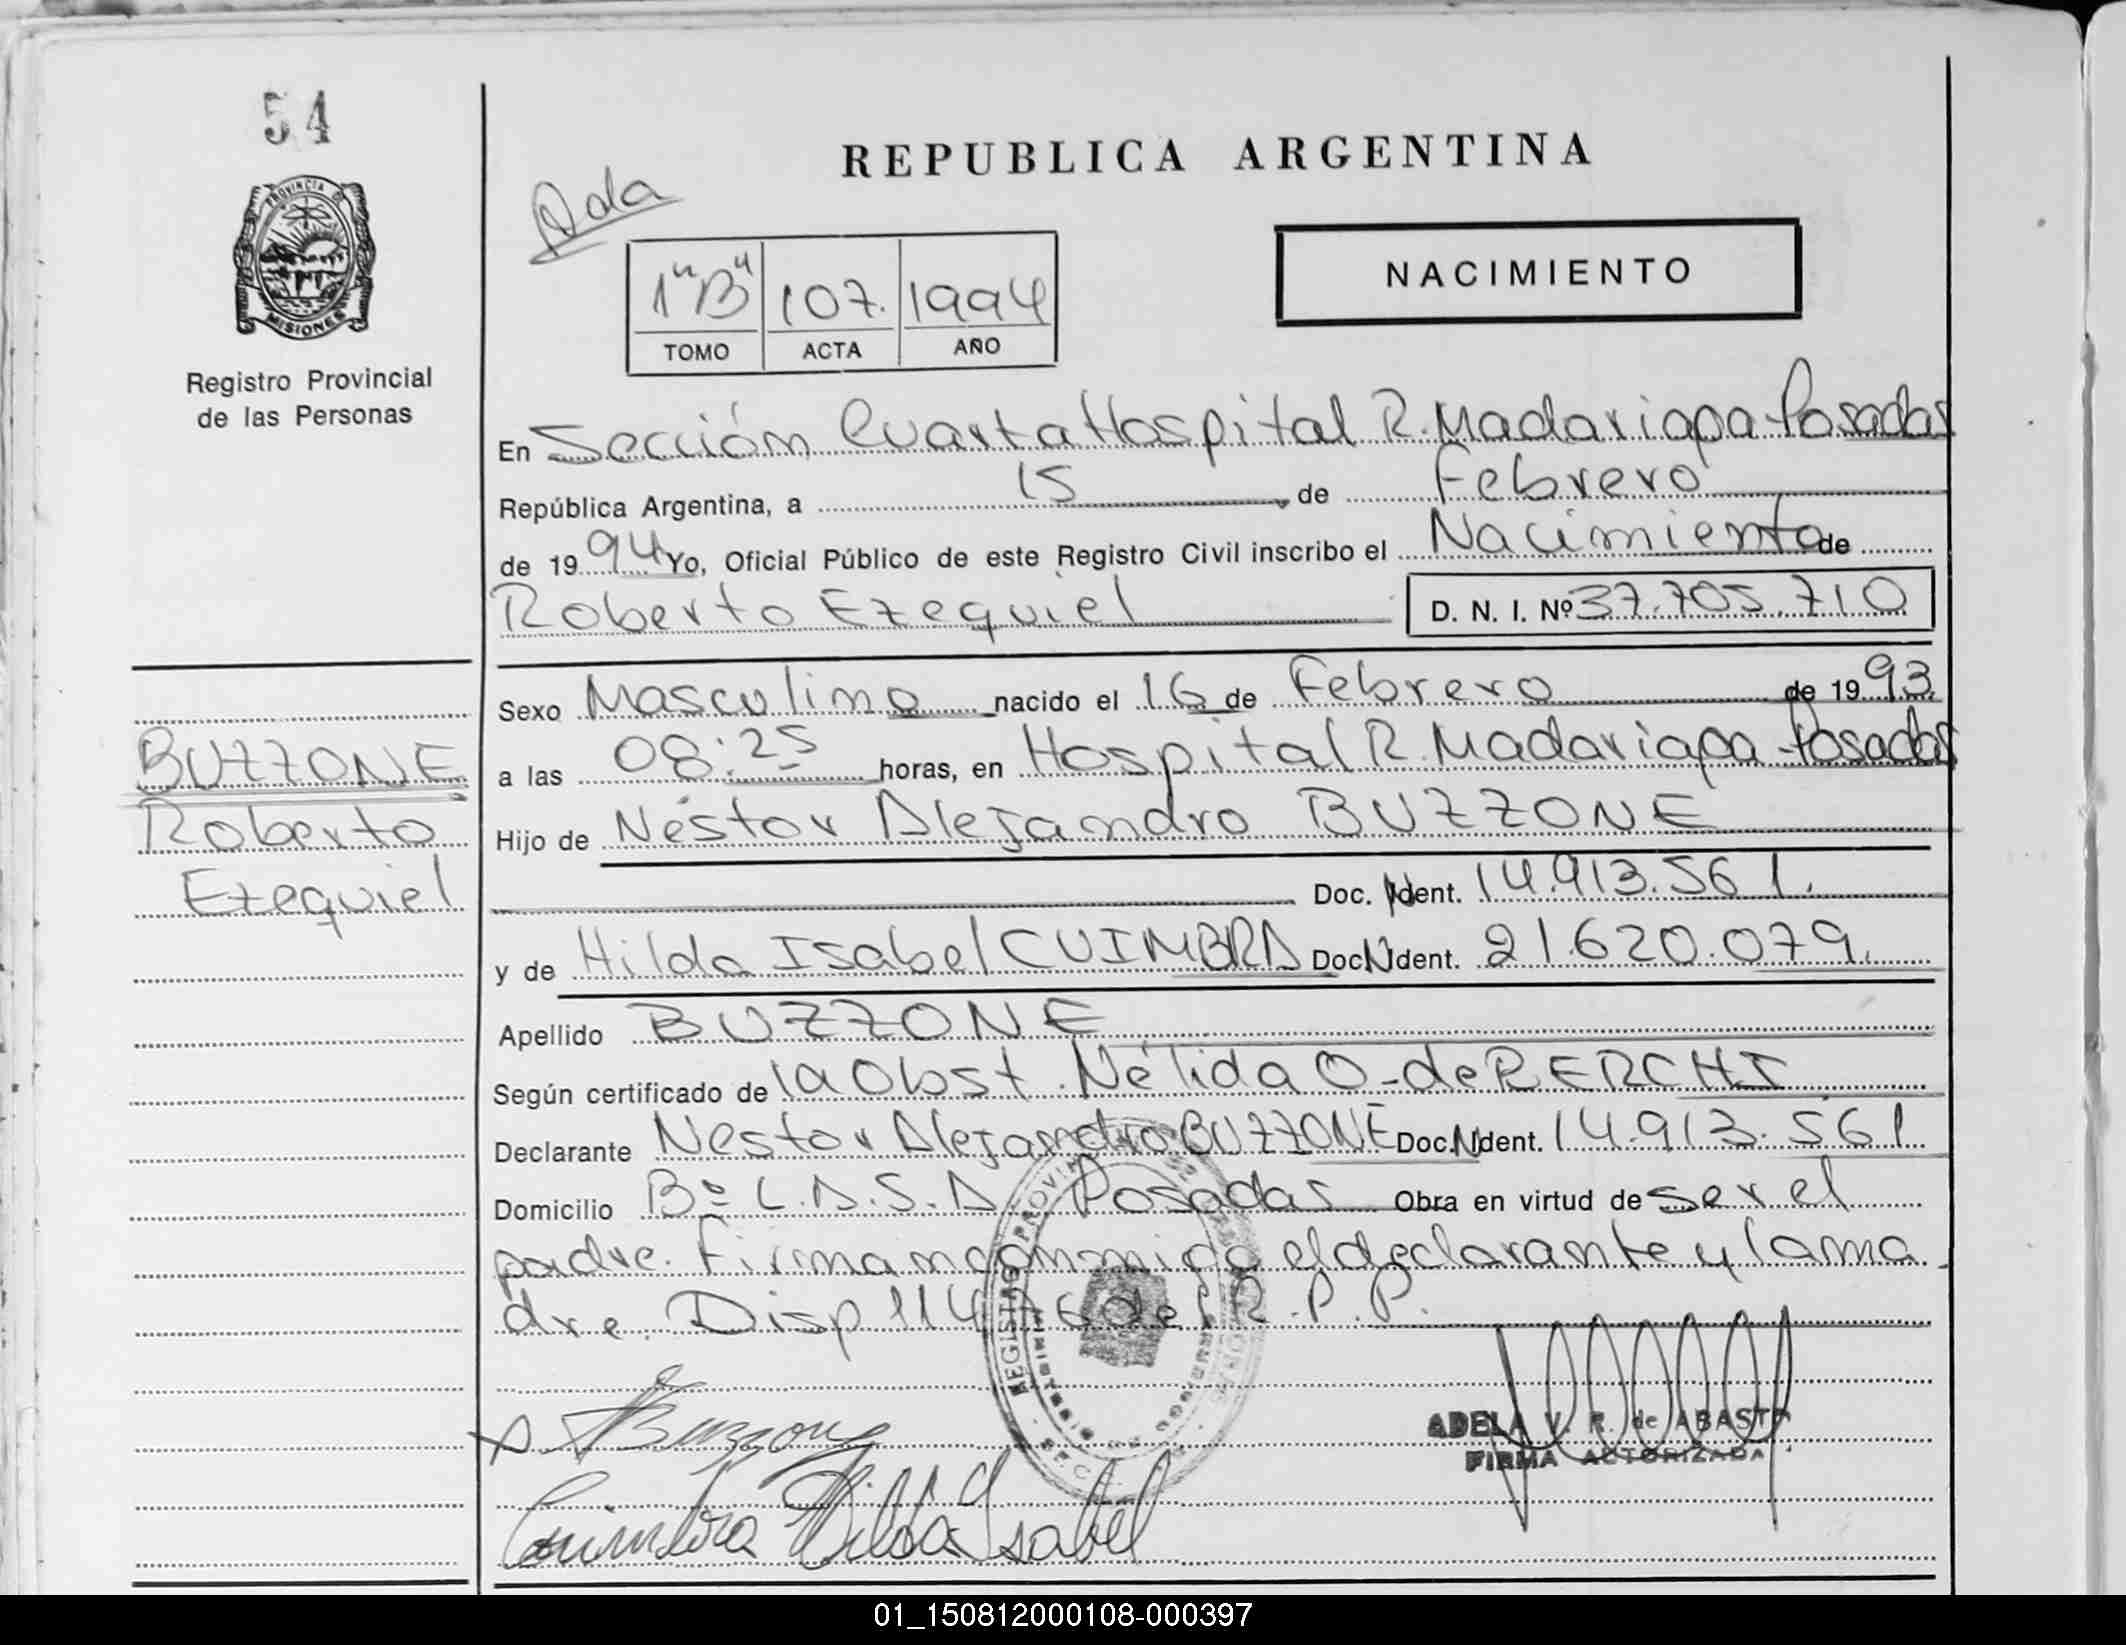 54
PROVINCIA DE
MISIONES
Registro Provincial
de las Personas
REPUBLICA ARGENTINA
NACIMIENTO
1"B" 107. 1994
TOMO ACTA AÑO
En Sección Cuarta Hospital R. Madariaga-Posadas
República Argentina, a 15 de Febrero
de 1994 Yo, Oficial Público de este Registro Civil inscribo el Nacimiento de
Roberto Ezequiel D. N. I. Nº 37.705.710
Sexo Masculino nacido el 16 de Febrero de 1993
a las 08:25 horas, en Hospital R. Madariaga-Posadas
BUZZONE
Roberto
Ezequiel
Hijo de Néstor Alejandro BUZZONE
Doc. Ident. 14.913.561.
y de Hilda Isabel CUIMBRA Doc. Ident. 21.620.079.
Apellido BUZZONE
Según certificado de la Obst. Nélida O. de RERCHI
Declarante Nestor Alejandro BUZZONE Doc. Ident. 14.913.561
Domicilio Bº L.A.S.A Posadas Obra en virtud de ser el
padre. Firman conmigo el declarante y la ma
dre. Disp 114/76 del R.P.P.
A. Buzzone
Cuimbra Hilda Isabel
ADELA V. R. de ABASTO
FIRMA AUTORIZADA
01_150812000108-000397